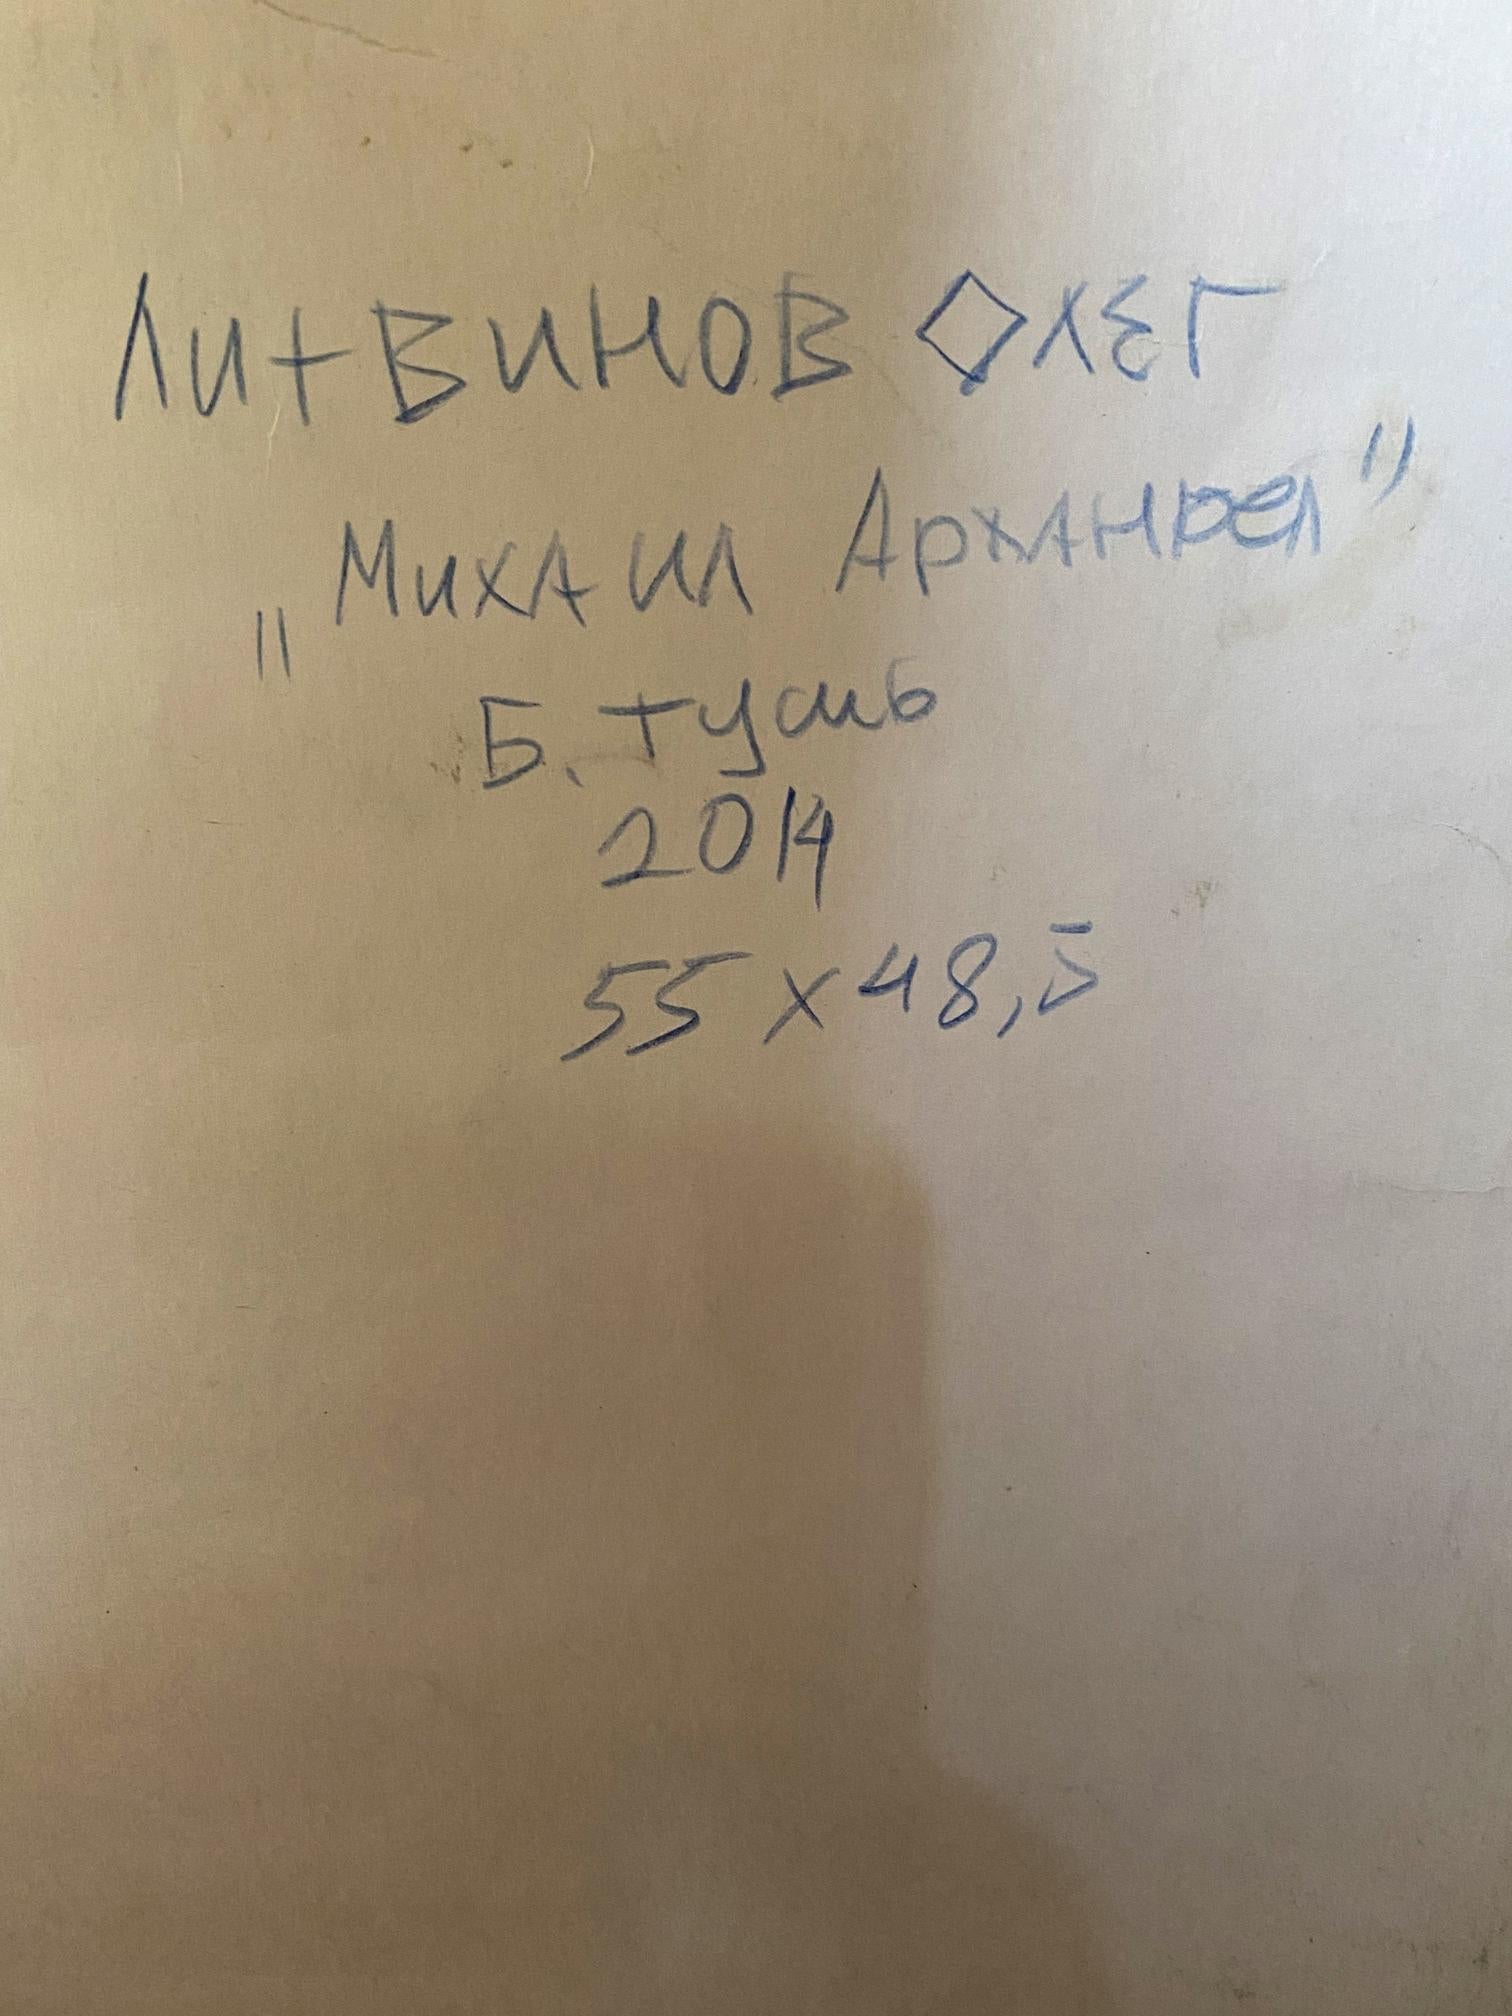 ЛИТВИНОВ ОЛЕГ
„Михаил Архангел"
Б. тушь
2014
55 x 48,5